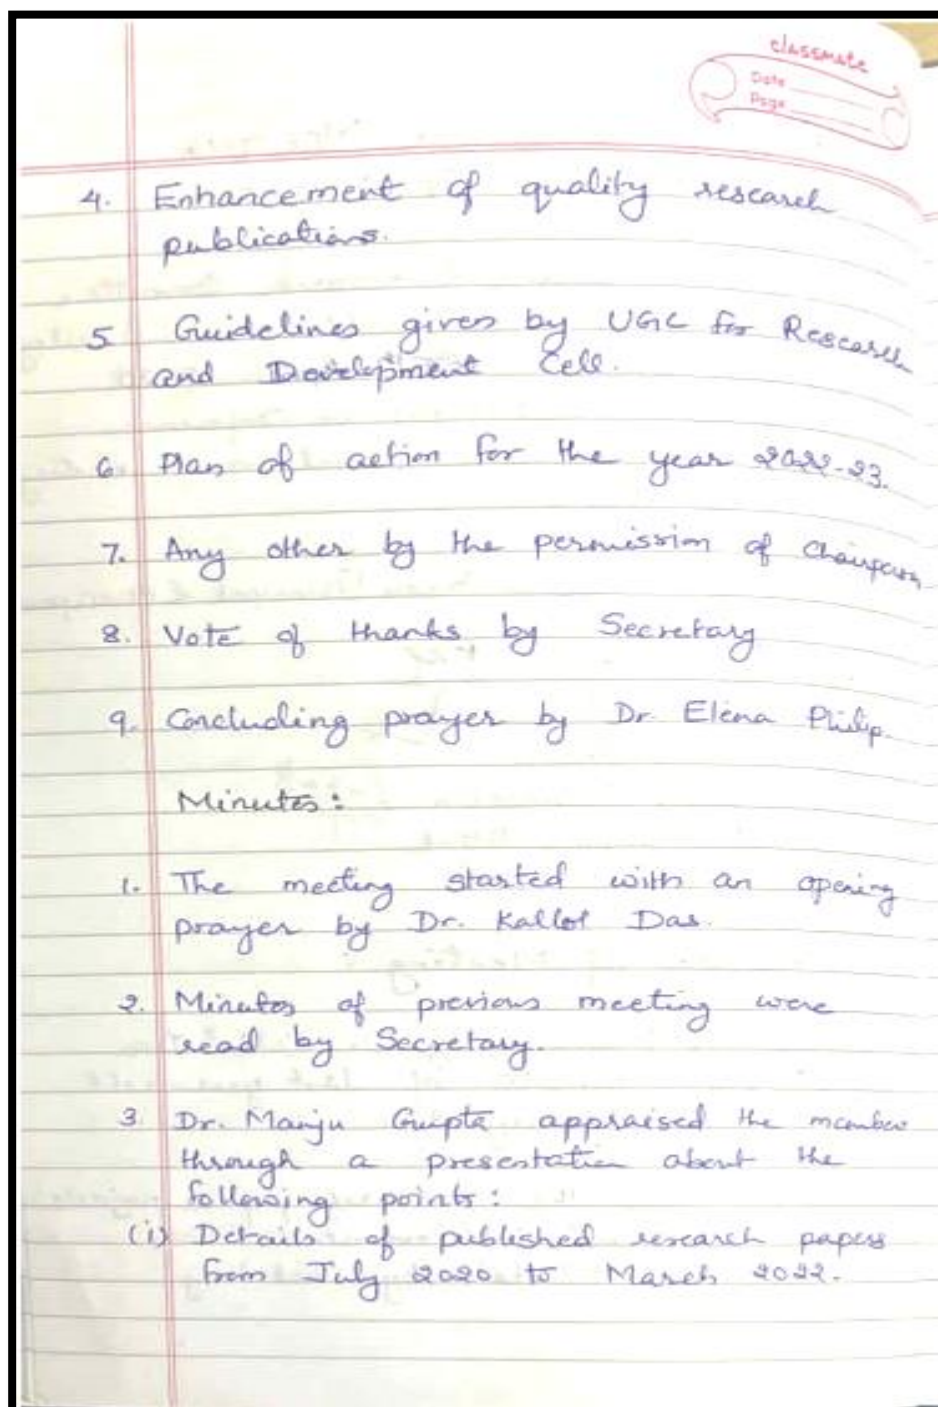 classmate
Date
Page
4. Enhancement of quality research
publications.
5 Guidelines given by UGC for Research
and Development Cell.
6. Plan of action for the year 2022-23.
7. Any other by the permission of Chairperson
8. Vote of thanks by Secretary
9. Concluding prayer by Dr Elena Philip.
Minutes:
1. The meeting started with an opening
prayer by Dr. Kallol Das.
2. Minutes of previous meeting were
read by Secretary.
3. Dr. Manju Gupta appraised the member
through a presentation about the
following points:
(i) Details of published research papers
from July 2020 to March 2022.